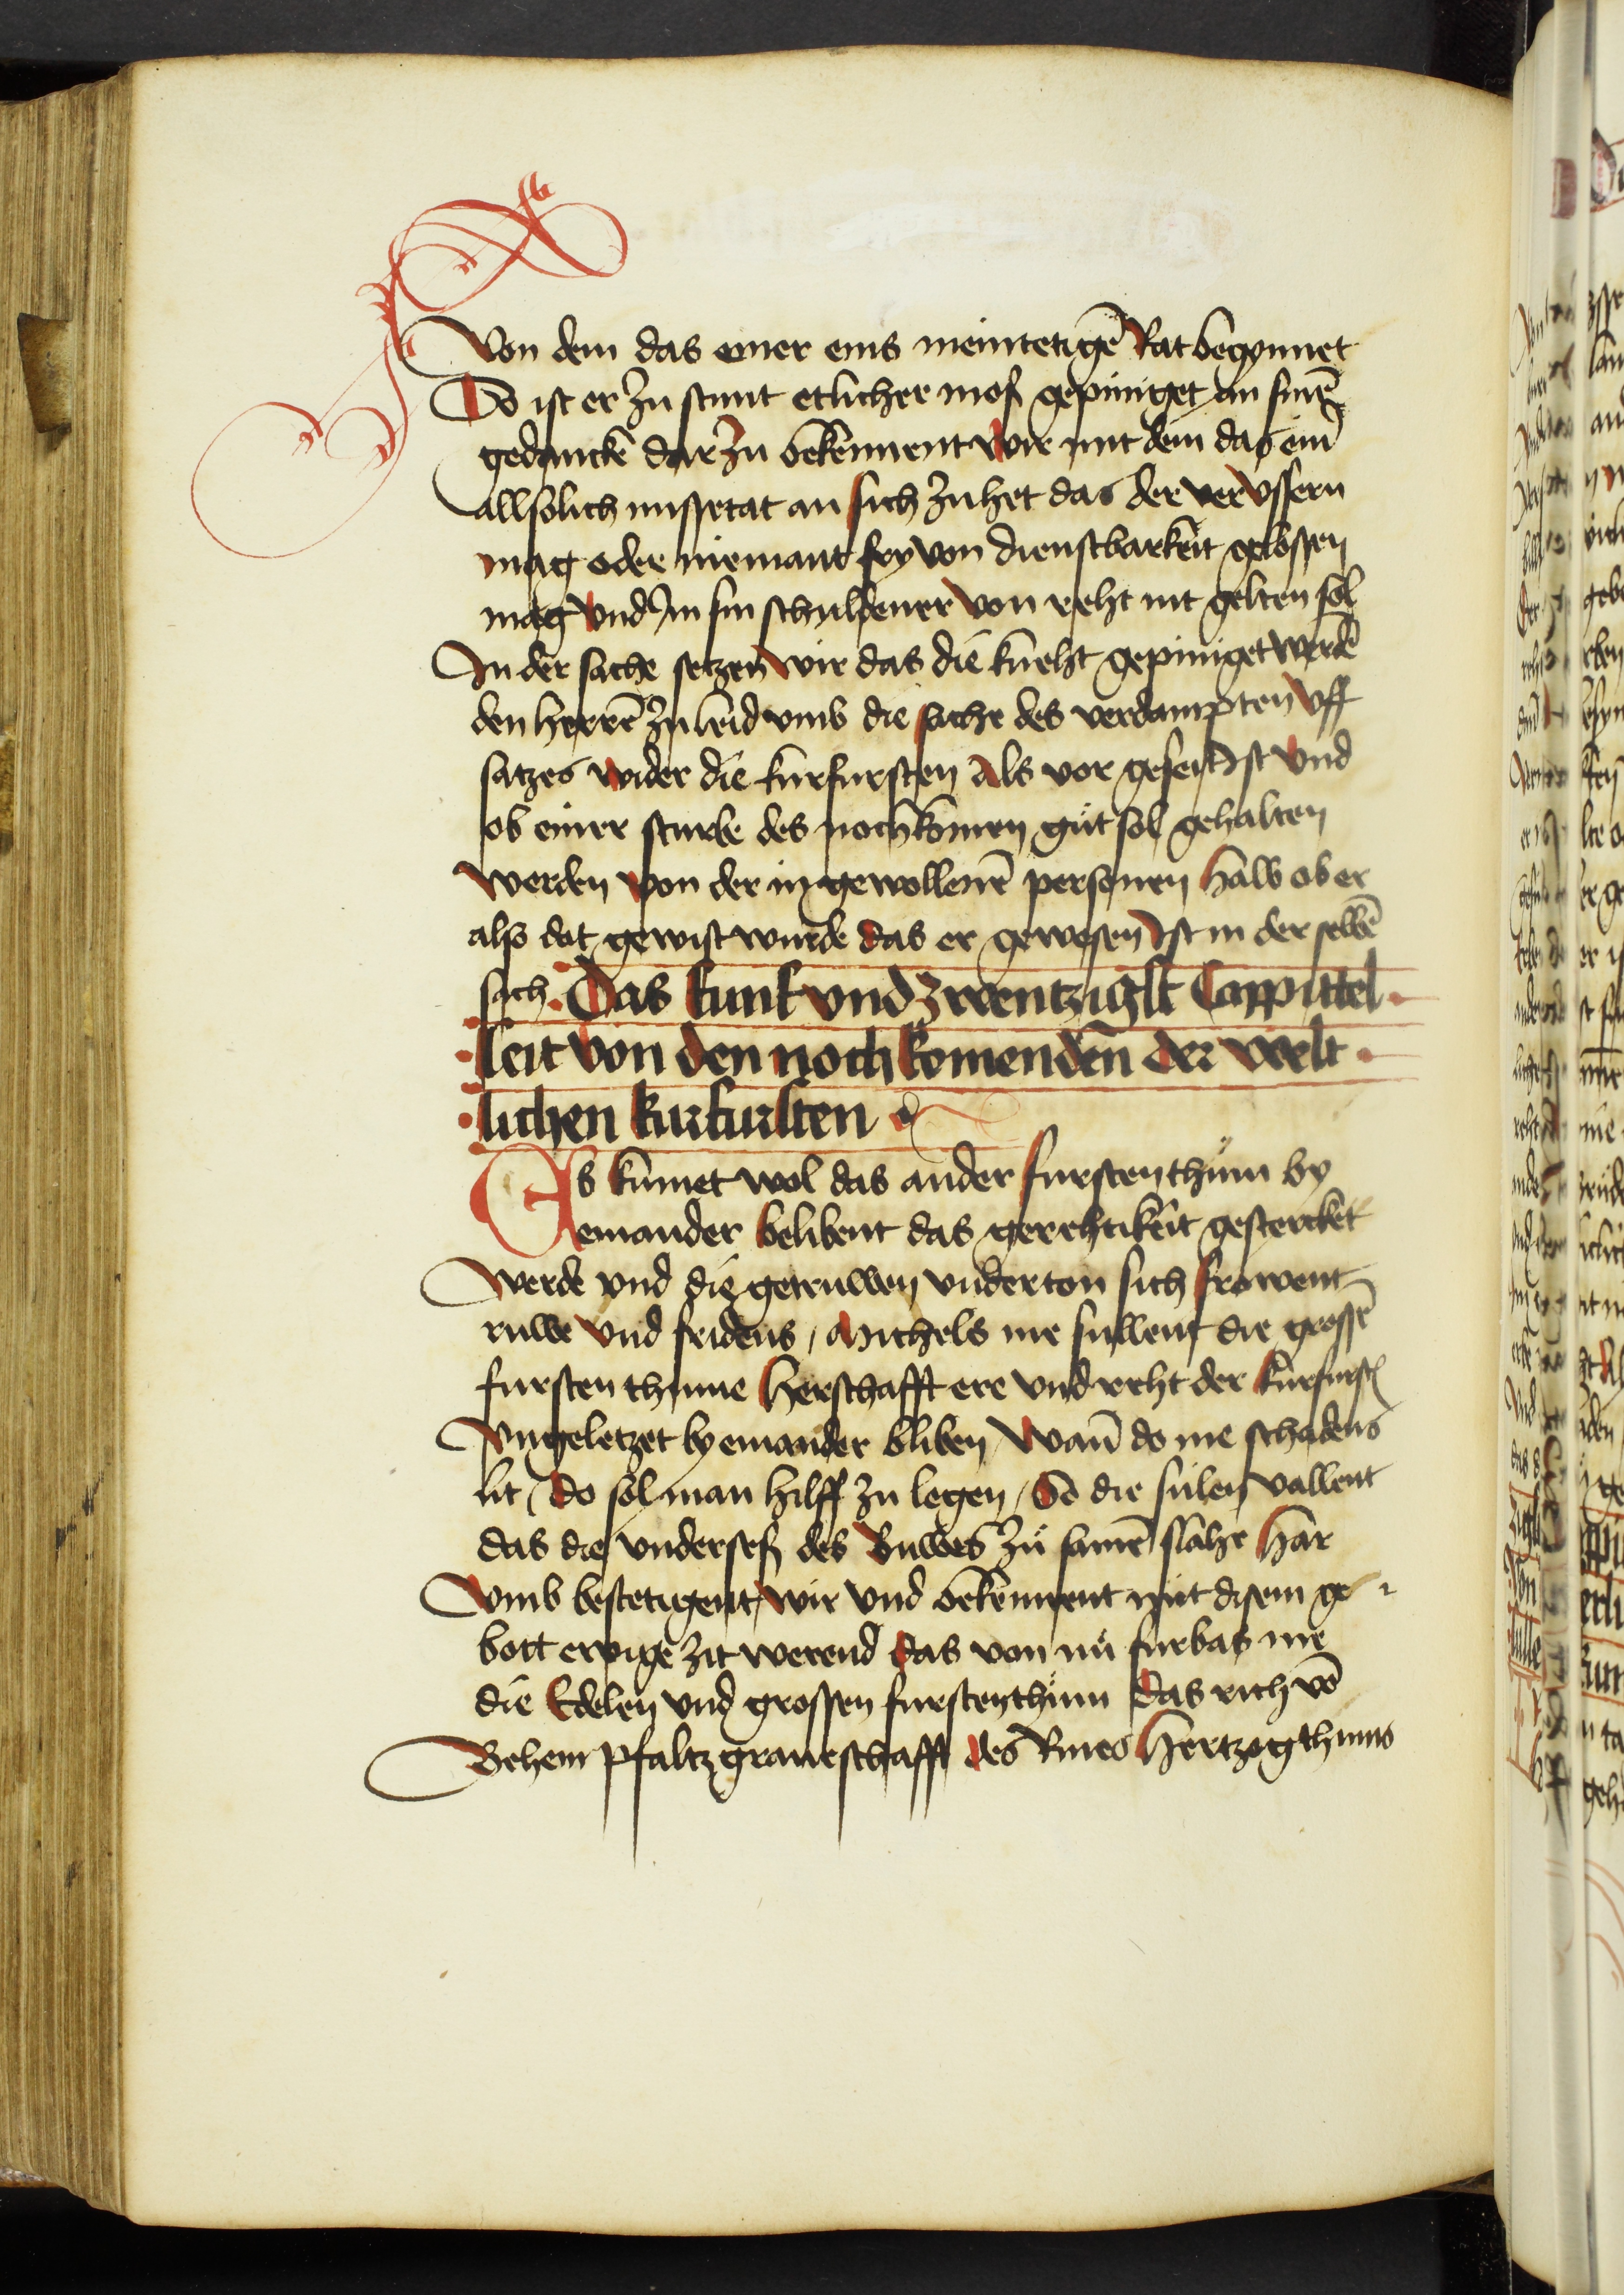 Von dem das einer eins meintetigē Rat begynnet
Do ist er zu stunt etlicher mos gepiniget an sinē
gedancke dar zu bekennent wir mit dem das ein
allsolich missetat an sich zuhet das der ver vssern
mag oder niemant fry von dienstbarkeit gelossen
mag vnd Im sin schuldener von reht nit gelten sol
In der sache setzen wir das die kneht gepiniget werdē
den herrē zu leid vmb die sache des verdampten vff
satzes wider die kurfursten Als vor geseit Ist vnd
ob einer sturbe des nochkomen gůt sol gehalten
werden von der in gewollenē personen halb ob er
also dot gewist wurde das er gewesen Ist in der selbē
sach Das funf vnd zwentzigst Cappittel
seit von den noch komenden der welt
lichen kurfursten
Es kumet wol das ander furstenthům by
einander belibent das gerehtikeit gestercket
werde vnd die getruwen vnderton sich frowent
ruwe vnd fridens / Michels me sullent die grossē
fursten thume herschafft ere vnd reht der kurfurst
vngeletzet by einander bliben / Wann do me schadens
lit / do sol man hilff zu legen / So die sulen vallent
das die vnderses des Buwes zů samē slahe har
vmb bestetigent wir vnd bekennent mit disem ge
bott ewige zit werend das von nů furbas me
die Edelen vnd grossen furstenthům das rich vō
Behem pfaltzgraueschafft des Rines hertzogthums